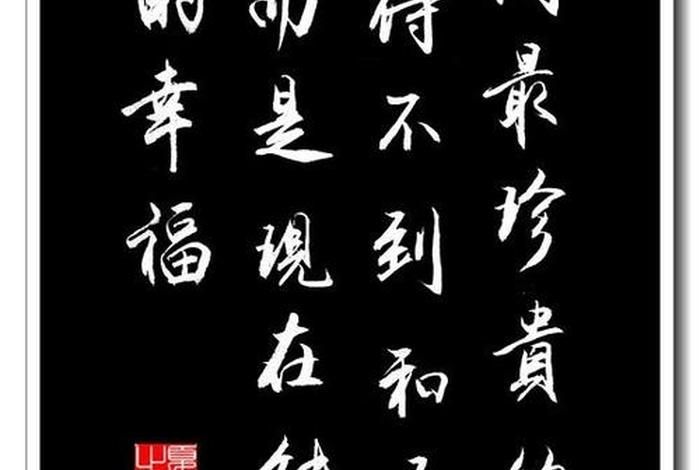 最珍貴
得不到和
而是現在能
的幸福